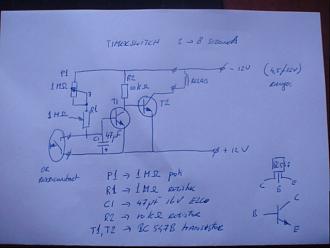 TIMERSWITCH 2→8 seconds
P1
1MΩ
R2
10kΩ
RELAIS
-12V
(4,5/12V)
1MΩ
R1
T1
T2
C1
47µF
+12V
OR
P1 → 1MΩ pot
R1 → 1MΩ resistor
C1 → 47µF 16V ELCO
R2 → 10kΩ resistor
T1, T2 → BC 547B transistor
BC 547
C B E
B
C
E